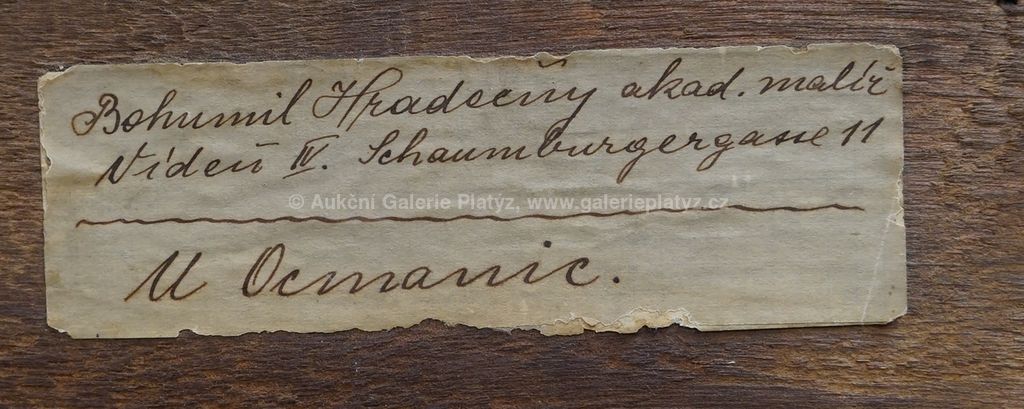 Bohumil Hradečný akad. malíř
Vídeň IV. Schaumburgergasse 11
© Aukční Galerie Platýz, www.galerieplatyz.cz
U Ocmanic.